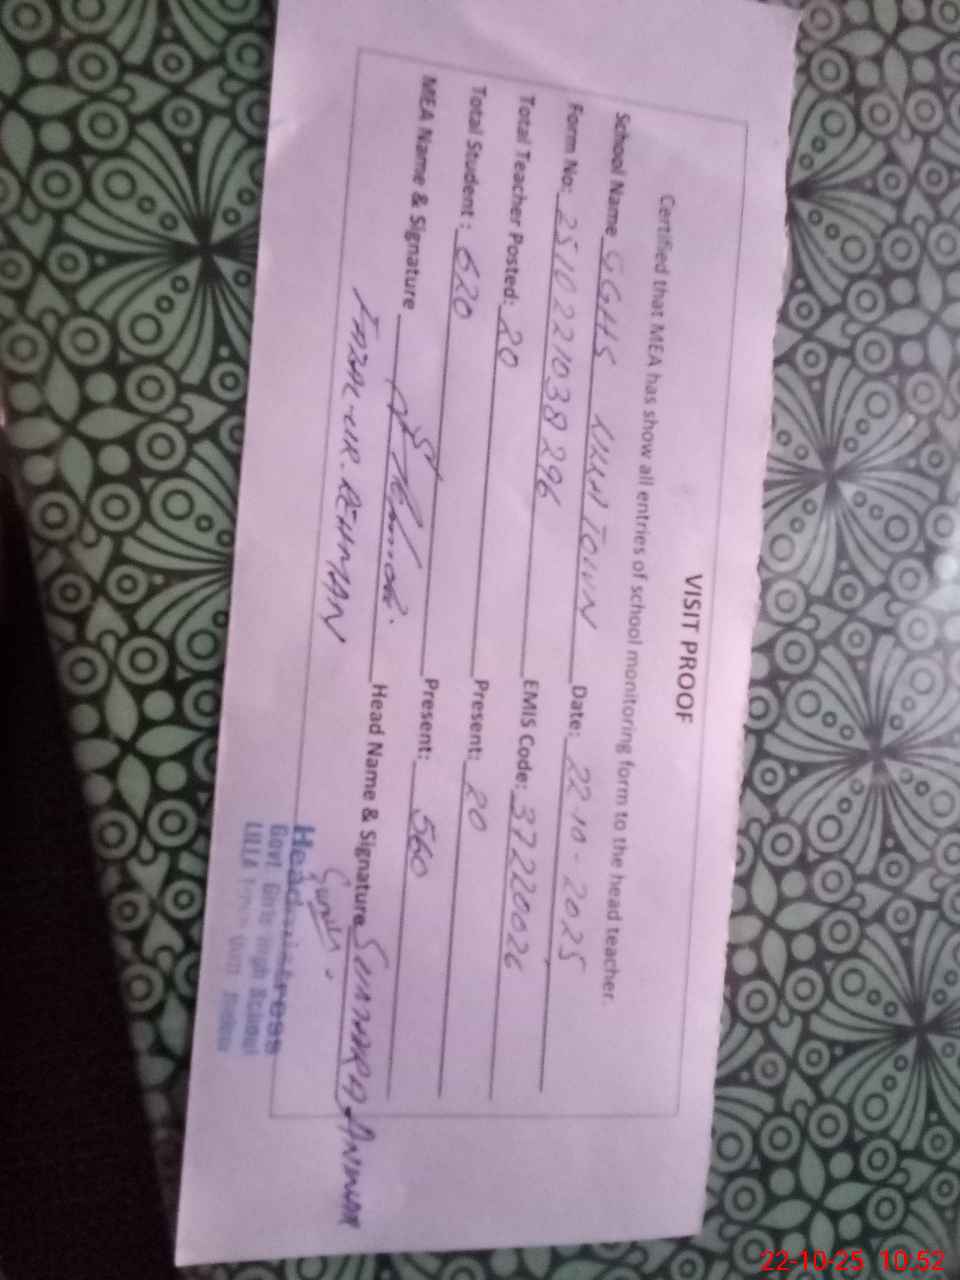 VISIT PROOF
Certified that MEA has show all entries of school monitoring form to the head teacher.
School Name GGHS LILLA TOWN Date: 22-10-2025
Form No: 2510221038296 EMIS Code: 37220026
Total Teacher Posted: 20 Present: 20
Total Student: 620 Present: 560
MEA Name & Signature Head Name & Signature ANWAR
FAZAL-UR-REHMAN
Headmistress
Govt. Girls High School
LILLA Town
22-10-25 10:52